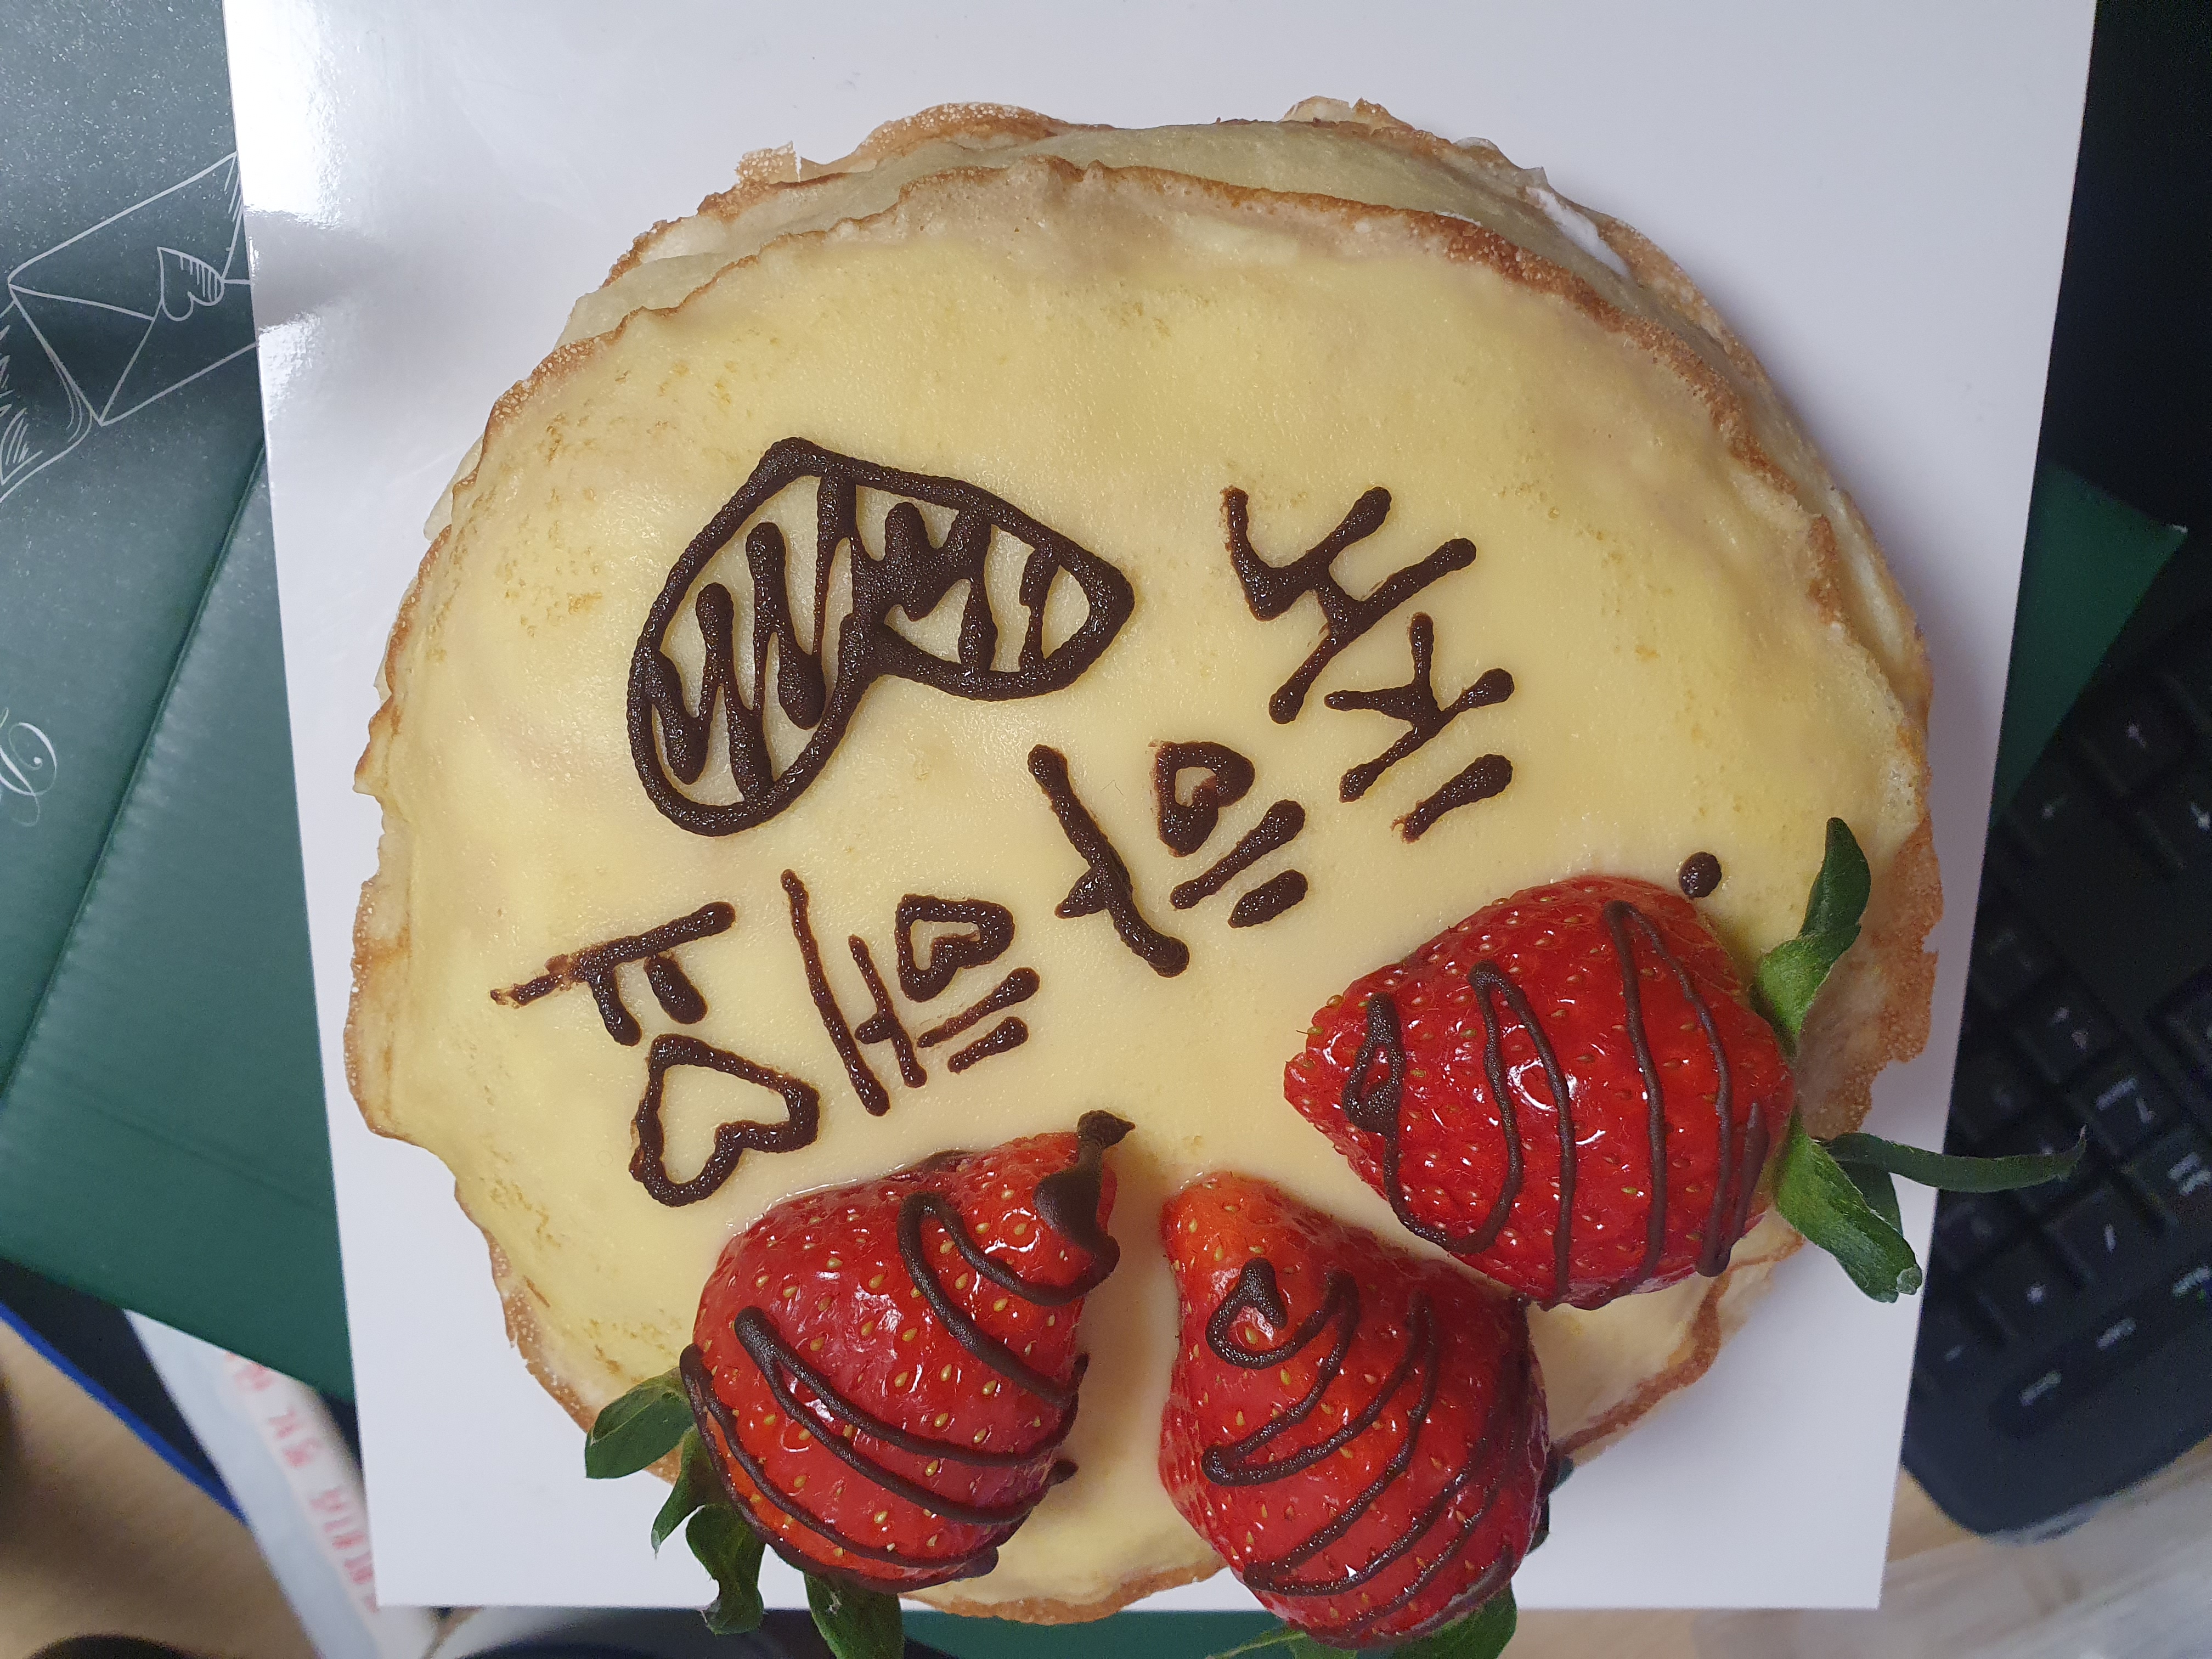 축하해요♡